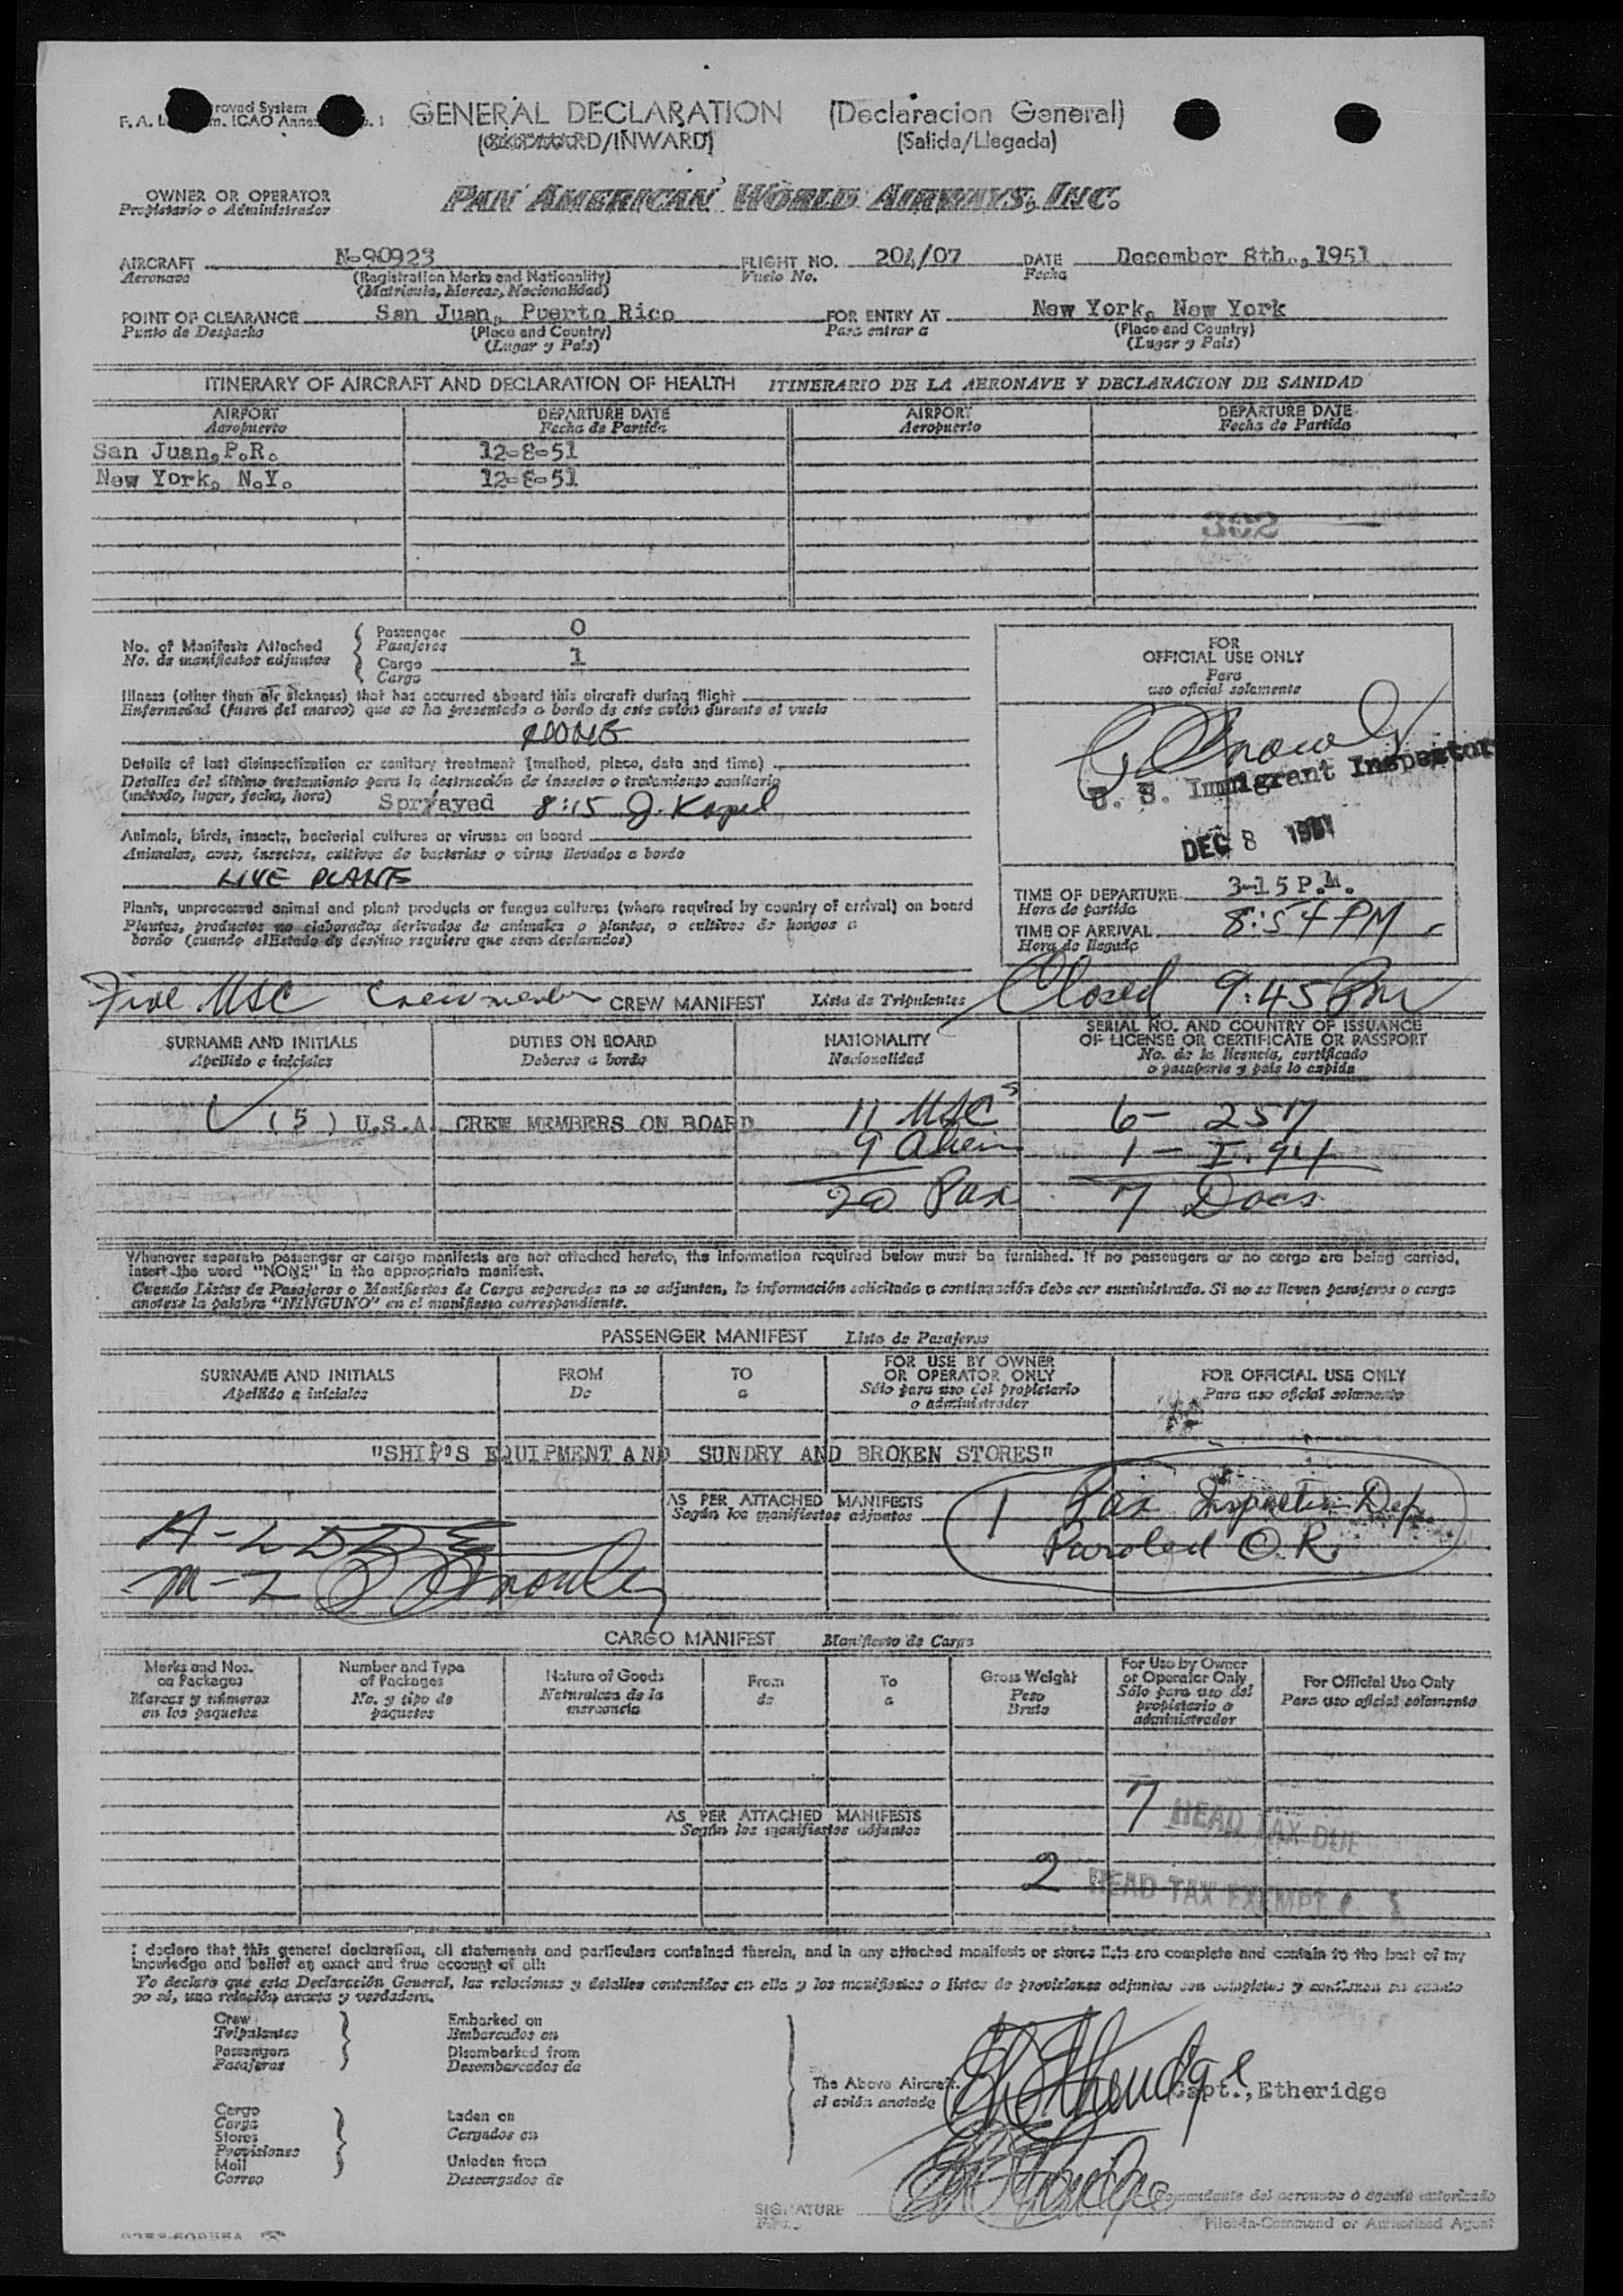 roved System
F. A. L. m. ICAO Annex . 1
GENERAL DECLARATION (Declaracion General)
(OUTWARD/INWARD) (Salida/Llegada)
OWNER OR OPERATOR
Propietario o Administrador
PAN AMERICAN WORLD AIRWAYS, INC.
AIRCRAFT N-90923 FLIGHT NO. 204/07 DATE December 8th., 1951
Aeronave (Registration Marks and Nationality) Vuelo No. Fecha
(Matricula, Marcas, Nacionalidad)
POINT OF CLEARANCE San Juan, Puerto Rico FOR ENTRY AT New York, New York
Punto de Despacho (Place and Country) Para entrar a (Place and Country)
(Lugar y País) (Lugar y País)
ITINERARY OF AIRCRAFT AND DECLARATION OF HEALTH ITINERARIO DE LA AERONAVE Y DECLARACION DE SANIDAD
AIRPORT DEPARTURE DATE AIRPORT DEPARTURE DATE
Aeropuerto Fecha de Partida Aeropuerto Fecha de Partida
San Juan,P.R. 12-8-51
New York, N.Y. 12-8-51
No. of Manifests Attached
No. de manifiestos adjuntos
Passenger 0
Pasajeros
Cargo 1
Cargo
Illness (other than air sickness) that has occurred aboard this aircraft during flight
Enfermedad (fuera del mareo) que se ha presentado a bordo de este avión durante el vuelo
NONE
Details of last disinsectization or sanitary treatment (method, place, date and time)
Detalles del último tratamiento para la destrucción de insectos o tratamiento sanitario
(método, lugar, fecha, hora) Spryayed 8:15 J. Kapel
Animals, birds, insects, bacterial cultures or viruses on board
Animales, aves, insectos, cultivos de bacterias o virus llevados a bordo
LIVE PLANTS
Plants, unprocessed animal and plant products or fungus cultures (where required by country of arrival) on board
Plantas, productos no elaborados derivados de animales o plantas, o cultivos de hongos a
bordo (cuando el Estado de destino requiere que sean declarados)
FOR
OFFICIAL USE ONLY
Para
uso oficial solamente
U. S. Immigrant Inspector
DEC 8 1951
TIME OF DEPARTURE 3-15 P.M.
Hora de partida
TIME OF ARRIVAL 8:54 PM
Hora de llegada
Five USC Crewmember CREW MANIFEST Lista de Tripulantes Closed 9:45 PM
SURNAME AND INITIALS DUTIES ON BOARD NATIONALITY SERIAL NO. AND COUNTRY OF ISSUANCE
OF LICENSE OR CERTIFICATE OR PASSPORT
Apellido e iniciales Deberes a bordo Nacionalidad No. de la licencia, certificado
o pasaporte y país lo expide
( 5 ) U.S.A. CREW MEMBERS ON BOARD 11 USCs 6- 257
9 Alien 1 - I. 94
20 Pax 7 Docs
Whenever separate passenger or cargo manifests are not attached hereto, the information required below must be furnished. If no passengers or no cargo are being carried,
insert the word "NONE" in the appropriate manifest.
Cuando Listas de Pasajeros o Manifiestos de Carga separados no se adjuntan, la información solicitada a continuación debe ser suministrada. Si no se lleven pasajeros o carga
anotese la palabra "NINGUNO" en el manifiesto correspondiente.
PASSENGER MANIFEST Lista de Pasajeros
SURNAME AND INITIALS FROM TO FOR USE BY OWNER
OR OPERATOR ONLY FOR OFFICIAL USE ONLY
Apellido e iniciales De a Sólo para uso del propietario
o administrador Para uso oficial solamente
"SHIP'S EQUIPMENT AND SUNDRY AND BROKEN STORES"
AS PER ATTACHED MANIFESTS
Según los manifiestos adjuntos
1 Pax Inspection Def.
Paroled O.R.
CARGO MANIFEST Manifiesto de Carga
Marks and Nos.
on Packages
Marcas y números
en los paquetes
Number and Type
of Packages
No. y tipo de
paquetes
Nature of Goods
Naturaleza de la
mercancía
From
de
To
a
Gross Weight
Peso
Bruto
For Use by Owner
or Operator Only
Sólo para uso del
propietario o
administrador
For Official Use Only
Para uso oficial solamente
AS PER ATTACHED MANIFESTS
Según los manifiestos adjuntos
7 HEAD TAX DUE
2 HEAD TAX EXEMPT
I declare that this general declaration, all statements and particulars contained therein, and in any attached manifests or stores lists are complete and contain to the best of my
knowledge and belief an exact and true account of all:
Yo declaro que esta Declaración General, las relaciones y detalles contenidos en ella y los manifiestos o listas de provisiones adjuntos son completos y contienen en cuanto
yo sé, una relación exacta y verdadera.
Crew
Tripulantes
Passengers
Pasajeros
Embarked on
Embarcados en
Disembarked from
Desembarcados de
Cargo
Carga
Stores
Provisiones
Mail
Correo
Laden on
Cargados en
Unladen from
Descargados de
The Above Aircraft.
el avión anotado
Capt., Etheridge
SIGNATURE
Firma
Comandante del aeronave o agente autorizado
Pilot-in-Command or Authorized Agent